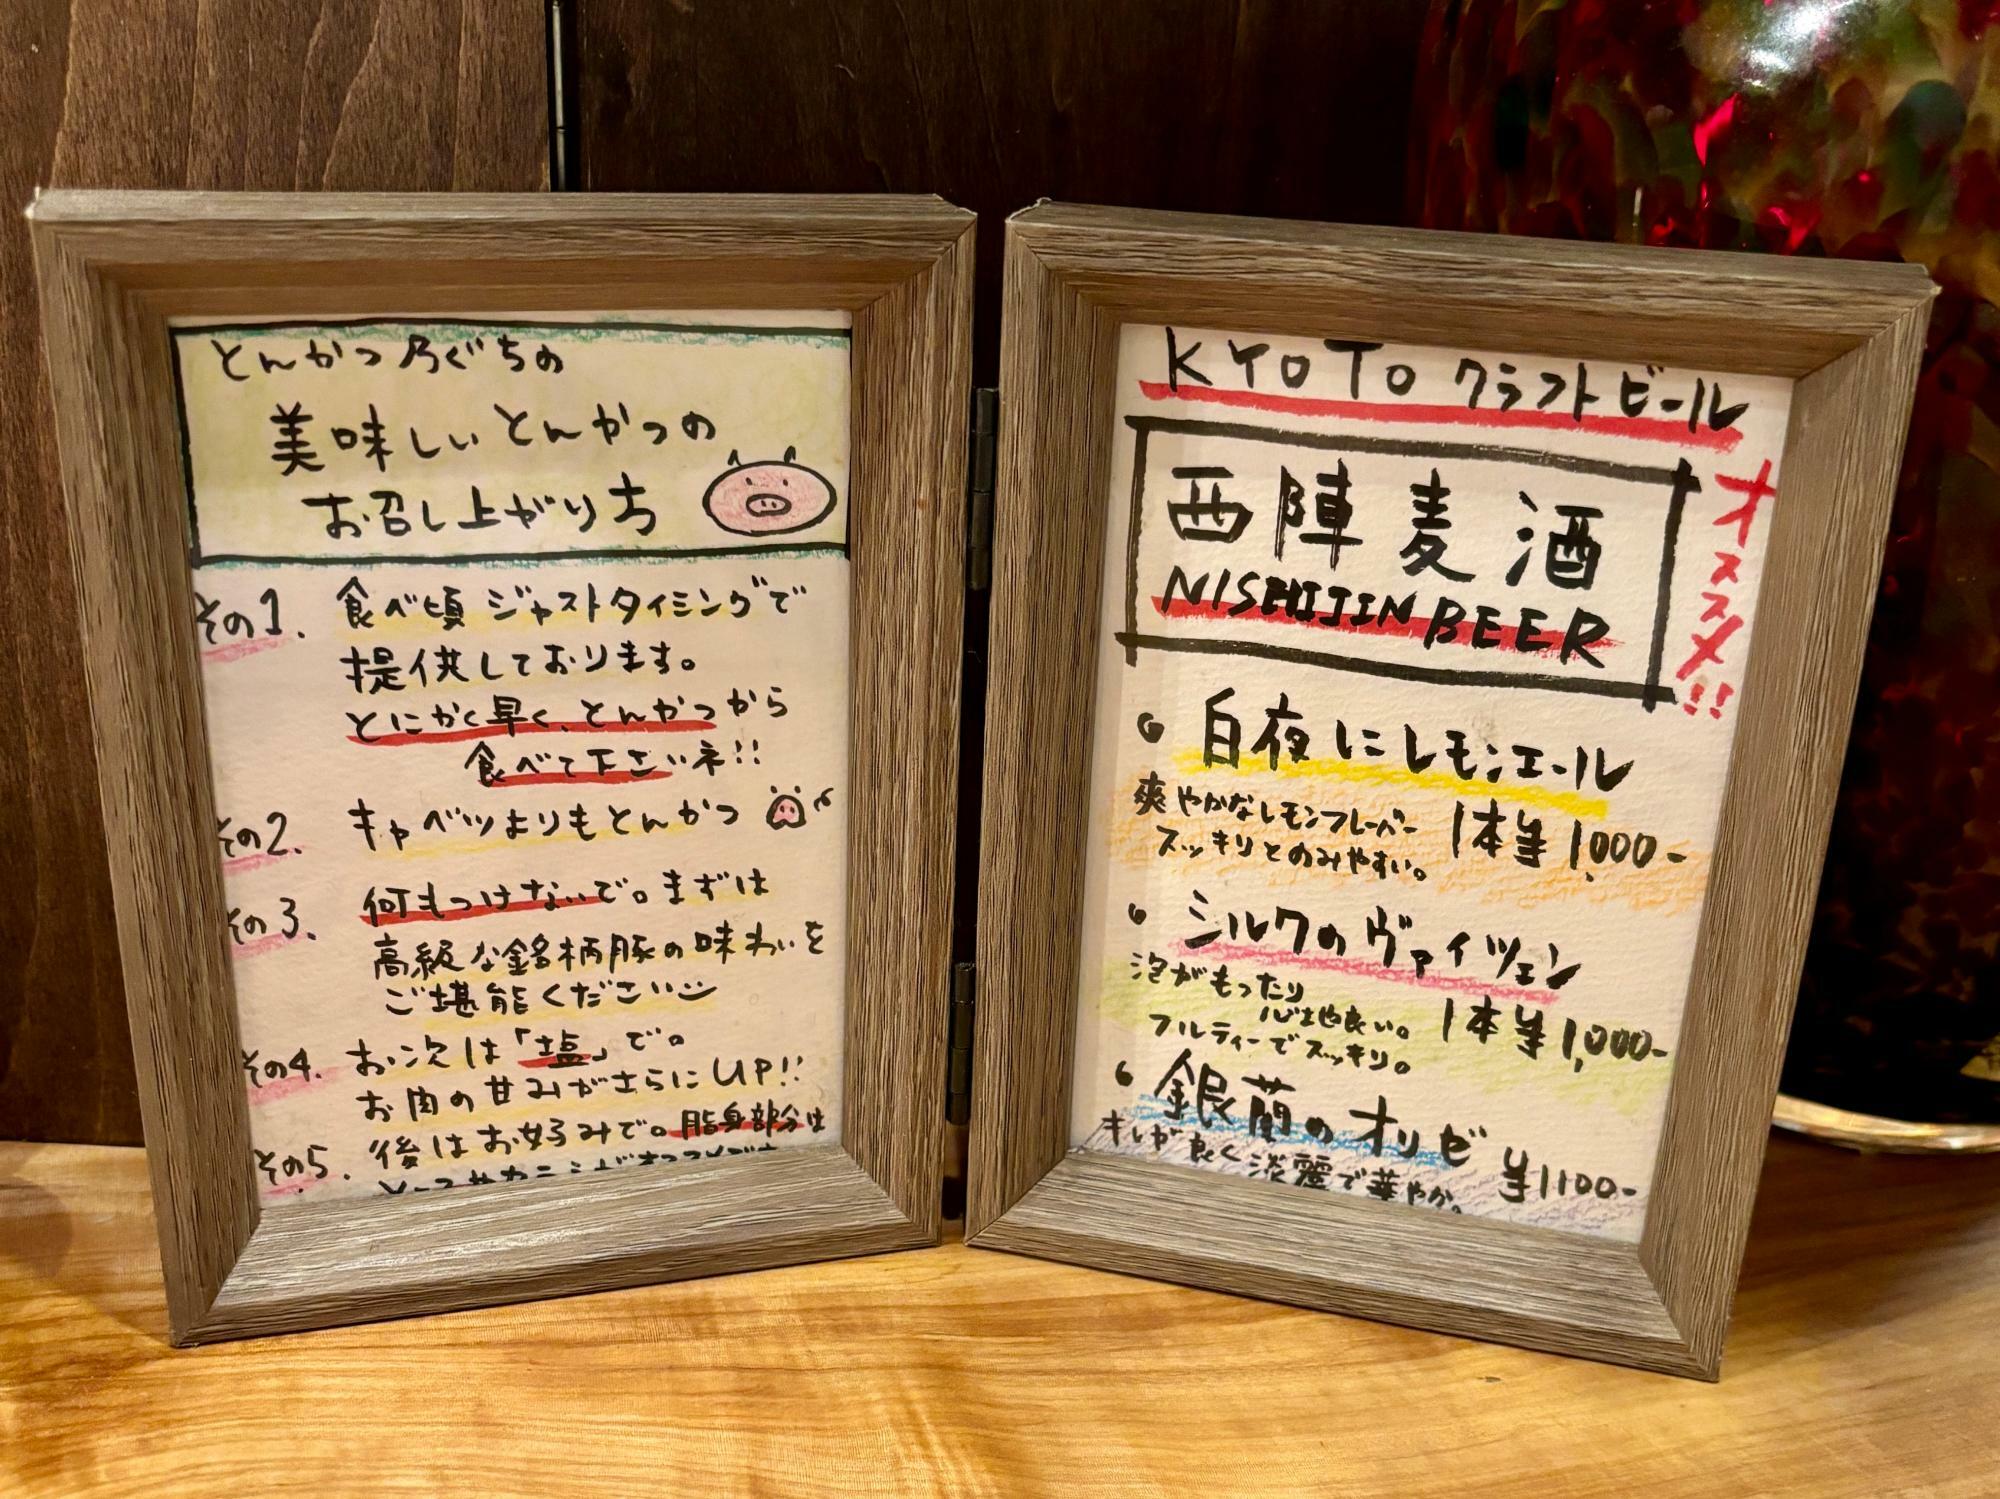 とんかつ乃ぐちの
美味しいとんかつの
お召し上がり方
その1. 食べ頃 ジャストタイミングで
提供しております。
とにかく早く、とんかつから
食べて下さいネ!!
その2. キャベツよりもとんかつ
その3. 何もつけないで。まずは
高級な銘柄豚の味わいを
ご堪能ください
その4. お次は「塩」で。
お肉の甘みがさらにUP!!
その5. 後はお好みで。脂身部分は
KYOTO クラフトビール
西陣麦酒
NISHIJIN BEER
オススメ!!
白夜にレモンエール
爽やかなレモンフレーバー
スッキリとのみやすい。
1本¥1,000-
シルクのヴァイツェン
泡がもったり
心地良い。
フルティーでスッキリ。
1本¥1,000-
銀蘭のオリゼ
キレが良く淡麗で華やか。
¥1100-